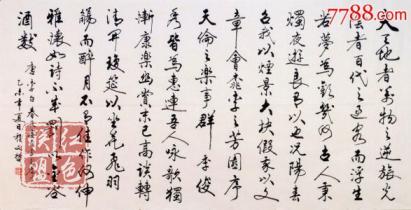 7788.com
天地者萬物之逆旅光
陰者百代之過客而浮生
若夢為歡幾何古人秉
燭夜遊良有以也況陽春
召我以煙景大块假我以文
章會桃李之芳園序
天倫之樂事群季俊
秀皆為惠連吾人詠歌獨
慚康樂幽賞未已高談轉
清開瓊筵以坐花飛羽
觴而醉月不有佳作何伸
雅懷如詩不成罰依金谷
酒數
唐李白春
乙未年夏月
红色
联盟